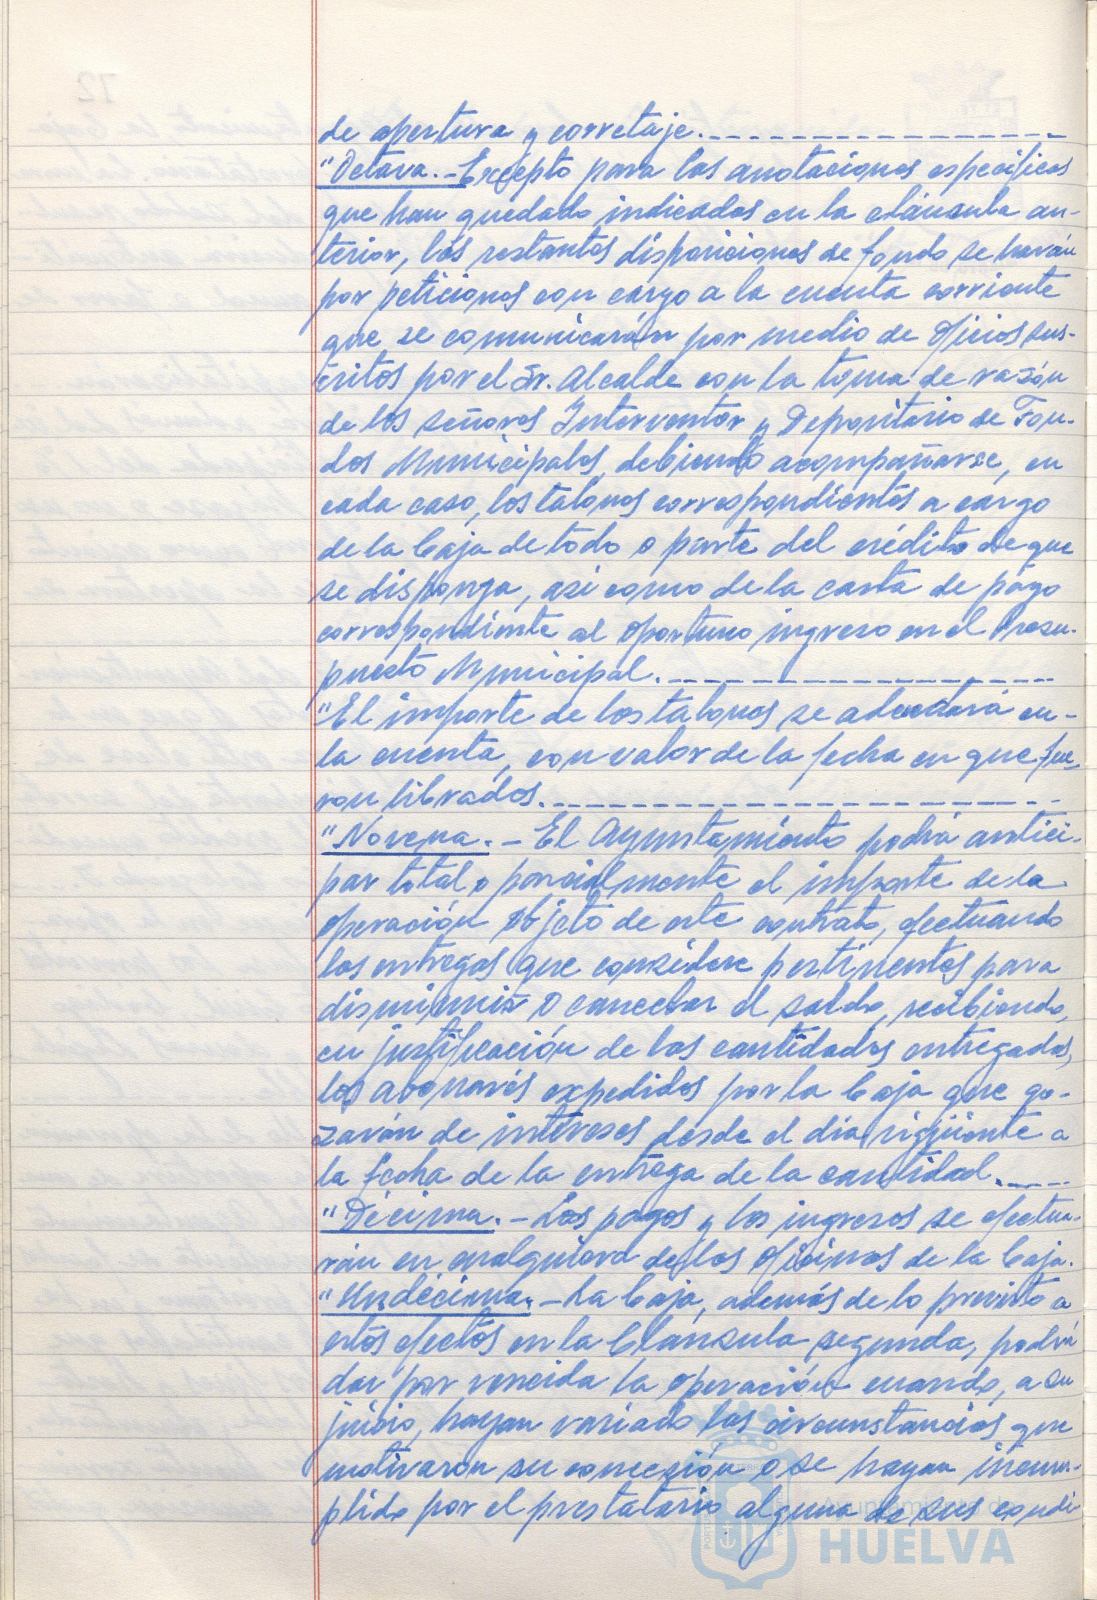 de apertura y corretaje.
"Octava.-Excepto para las anotaciones específicas
que han quedado indicadas en la cláusula an-
terior, las restantes disposiciones de fondo se harán
por peticiones con cargo a la cuenta corriente
que se comunicarán por medio de oficios sus-
critos por el Sr. Alcalde con la toma de razón
de los señores Interventor y Depositario de Fon-
dos Municipales, debiendo acompañarse, en
cada caso, los talones correspondientes a cargo
de la Caja de todo o parte del crédito de que
se disponga, así como de la carta de pago
correspondiente al oportuno ingreso en el Presu-
puesto Municipal.
"El importe de los talones se adeudará en-
la cuenta, con valor de la fecha en que fue-
ron librados.
"Novena.- El Ayuntamiento podrá antici-
par total o parcialmente el importe de la
operación objeto de este contrato, efectuando
las entregas que considere pertinentes para
disminuir o cancelar el saldo, recibiendo,
en justificación de las cantidades entregadas,
los abonarés expedidos por la Caja que go-
zarán de intereses desde el día siguiente a
la fecha de la entrega de la cantidad.
"Décima.- Los pagos y los ingresos se efectua-
rán en cualquiera de las oficinas de la Caja.
"Undécima.- La Caja, además de lo previsto a
estos efectos en la Cláusula segunda, podrá
dar por vencida la operación cuando, a su
juicio, hayan variado las circunstancias que
motivaron su concesión o se hayan incum-
plido por el prestatario alguna de sus condi
Ayuntamiento de
HUELVA
72